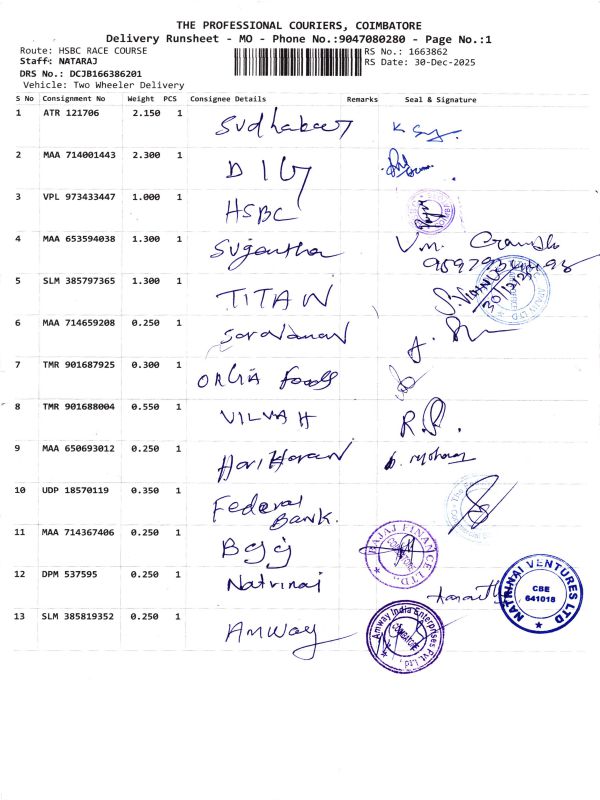 THE PROFESSIONAL COURIERS, COIMBATORE
Delivery Runsheet - MO - Phone No.:9047080280 - Page No.:1
Route: HSBC RACE COURSE RS No.: 1663862
Staff: NATARAJ RS Date: 30-Dec-2025
DRS No.: DCJB166386201
Vehicle: Two Wheeler Delivery
S No Consignment No Weight PCS Consignee Details Remarks Seal & Signature
1 ATR 121706 2.150 1
2 MAA 714001443 2.300 1
3 VPL 973433447 1.000 1 HSBC
4 MAA 653594038 1.300 1 Sugantha
5 SLM 385797365 1.300 1 TITAN 30/12/25
6 MAA 714659208 0.250 1 Saravanan
7 TMR 901687925 0.300 1 Foods
8 TMR 901688004 0.550 1 VILVAH
9 MAA 650693012 0.250 1 Hari Haran
10 UDP 18570119 0.350 1 Federal
Bank.
11 MAA 714367406 0.250 1 BAJAJ FINANCE LTD.
12 DPM 537595 0.250 1 Natrinai NATRINAI VENTURES LTD CBE 641018
13 SLM 385819352 0.250 1 Amway Amway India Enterprises Pvt. Ltd.